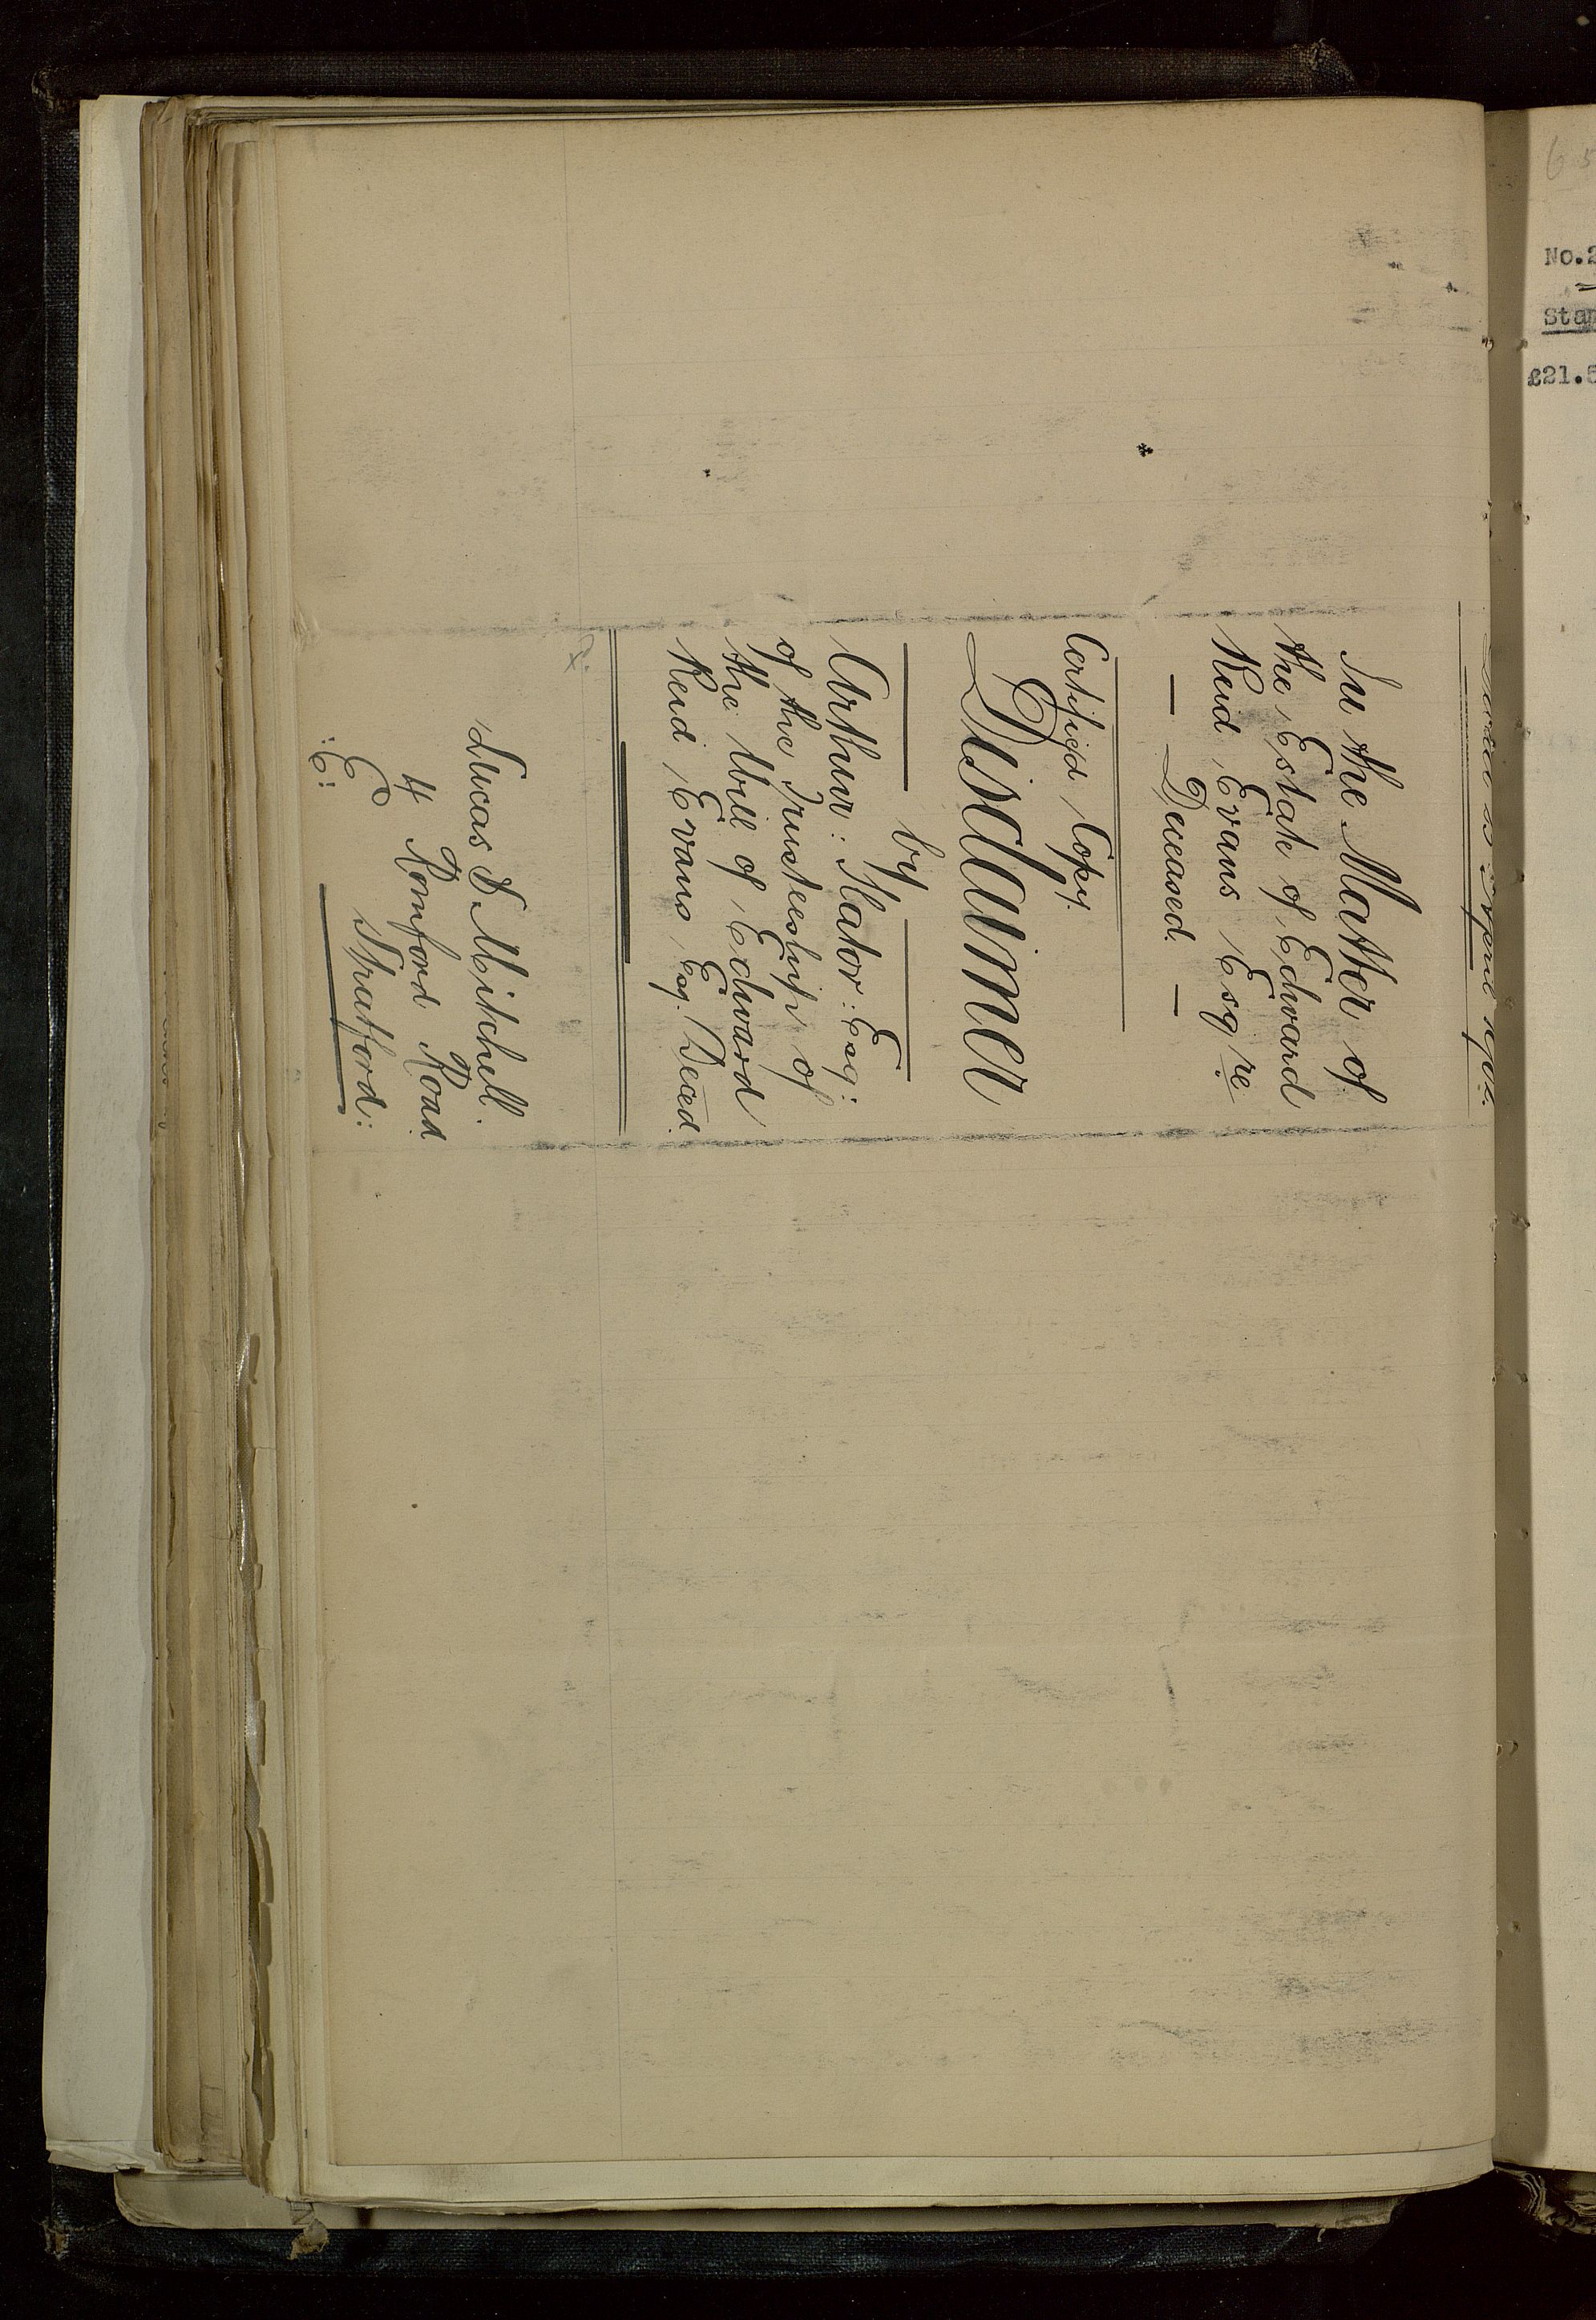 April 1902.
In the Matter of
the Estate of Edward
Reid Evans Esqre.
— Deceased. —
Certified Copy.
Disclaimer
by
Arthur: Slator: Esq:
of the Trusteeship of
the Will of Edward
Reid Evans Esq. Deced.
Lucas & Mitchell.
4 Romford Road.
Stratford:
:E:
No.2
£21.5